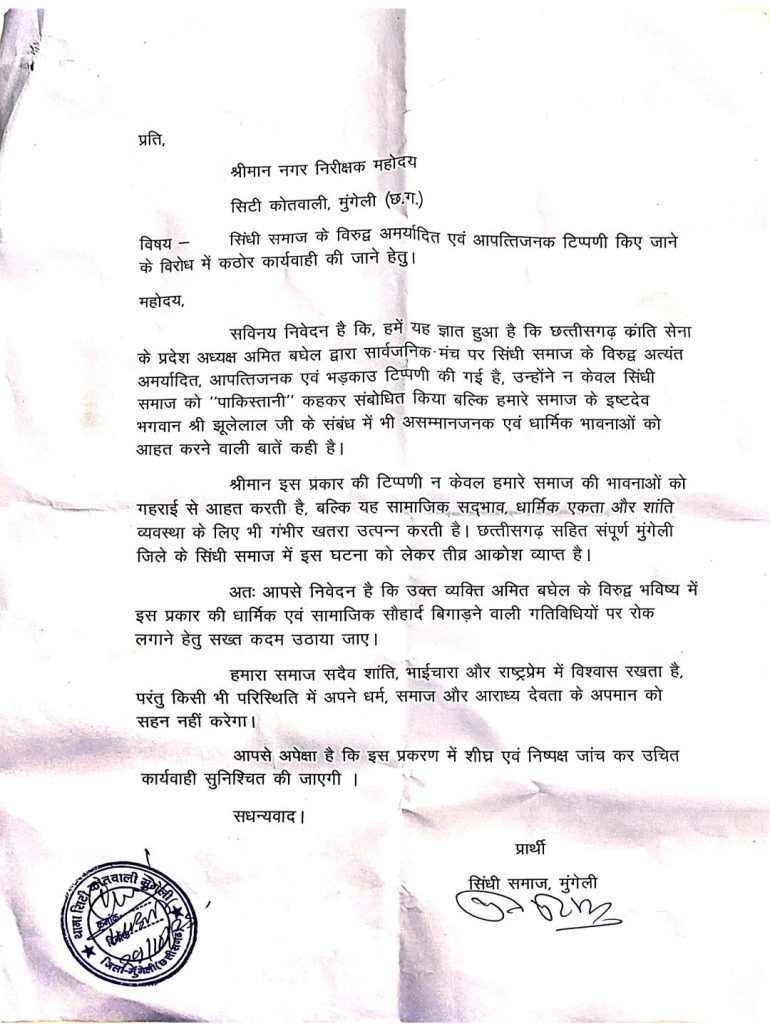 प्रति,
श्रीमान नगर निरीक्षक महोदय
सिटी कोतवाली, मुंगेली (छ.ग.)
विषय – सिंधी समाज के विरुद्व अमर्यादित एवं आपत्तिजनक टिप्पणी किए जाने
के विरोध में कठोर कार्यवाही की जाने हेतु।
महोदय,
सविनय निवेदन है कि, हमें यह ज्ञात हुआ है कि छत्तीसगढ़ क्रांति सेना
के प्रदेश अध्यक्ष अमित बघेल द्वारा सार्वजनिक मंच पर सिंधी समाज के विरुद्व अत्यंत
अमर्यादित, आपत्तिजनक एवं भड़काउ टिप्पणी की गई है, उन्होंने न केवल सिंधी
समाज को "पाकिस्तानी" कहकर संबोधित किया बल्कि हमारे समाज के इष्टदेव
भगवान श्री झूलेलाल जी के संबंध में भी असम्मानजनक एवं धार्मिक भावनाओं को
आहत करने वाली बातें कही है।
श्रीमान इस प्रकार की टिप्पणी न केवल हमारे समाज की भावनाओं को
गहराई से आहत करती है, बल्कि यह सामाजिक सद्भाव, धार्मिक एकता और शांति
व्यवस्था के लिए भी गंभीर खतरा उत्पन्न करती है। छत्तीसगढ़ सहित संपूर्ण मुंगेली
जिले के सिंधी समाज में इस घटना को लेकर तीव्र आक्रोश व्याप्त है।
अतः आपसे निवेदन है कि उक्त व्यक्ति अमित बघेल के विरुद्व भविष्य में
इस प्रकार की धार्मिक एवं सामाजिक सौहार्द बिगाड़ने वाली गतिविधियों पर रोक
लगाने हेतु सख्त कदम उठाया जाए।
हमारा समाज सदैव शांति, भाईचारा और राष्ट्रप्रेम में विश्वास रखता है,
परंतु किसी भी परिस्थिति में अपने धर्म, समाज और आराध्य देवता के अपमान को
सहन नहीं करेगा।
आपसे अपेक्षा है कि इस प्रकरण में शीघ्र एवं निष्पक्ष जांच कर उचित
कार्यवाही सुनिश्चित की जाएगी ।
सधन्यवाद।
प्रार्थी
सिंधी समाज, मुंगेली
थाना सिटी कोतवाली मुंगेली
क्रमांक
दिनांक
जिला-मुंगेली (छत्तीसगढ़)